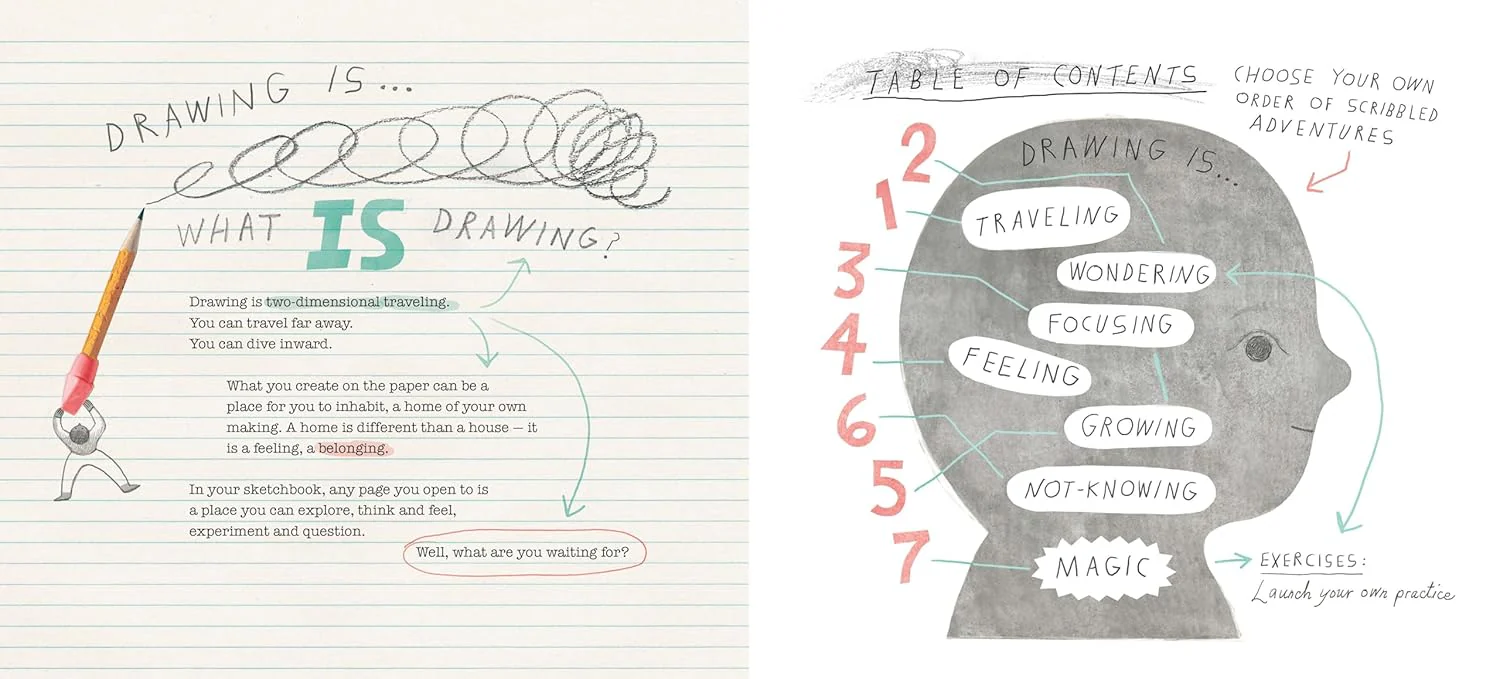 DRAWING IS...
WHAT IS DRAWING?
Drawing is two-dimensional traveling.
You can travel far away.
You can dive inward.
What you create on the paper can be a
place for you to inhabit, a home of your own
making. A home is different than a house — it
is a feeling, a belonging.
In your sketchbook, any page you open to is
a place you can explore, think and feel,
experiment and question.
Well, what are you waiting for?
TABLE OF CONTENTS
CHOOSE YOUR OWN
ORDER OF SCRIBBLED
ADVENTURES
DRAWING IS...
2
1
TRAVELING
WONDERING
3
FOCUSING
4
FEELING
6
GROWING
5
NOT-KNOWING
7
MAGIC
EXERCISES:
Launch your own practice